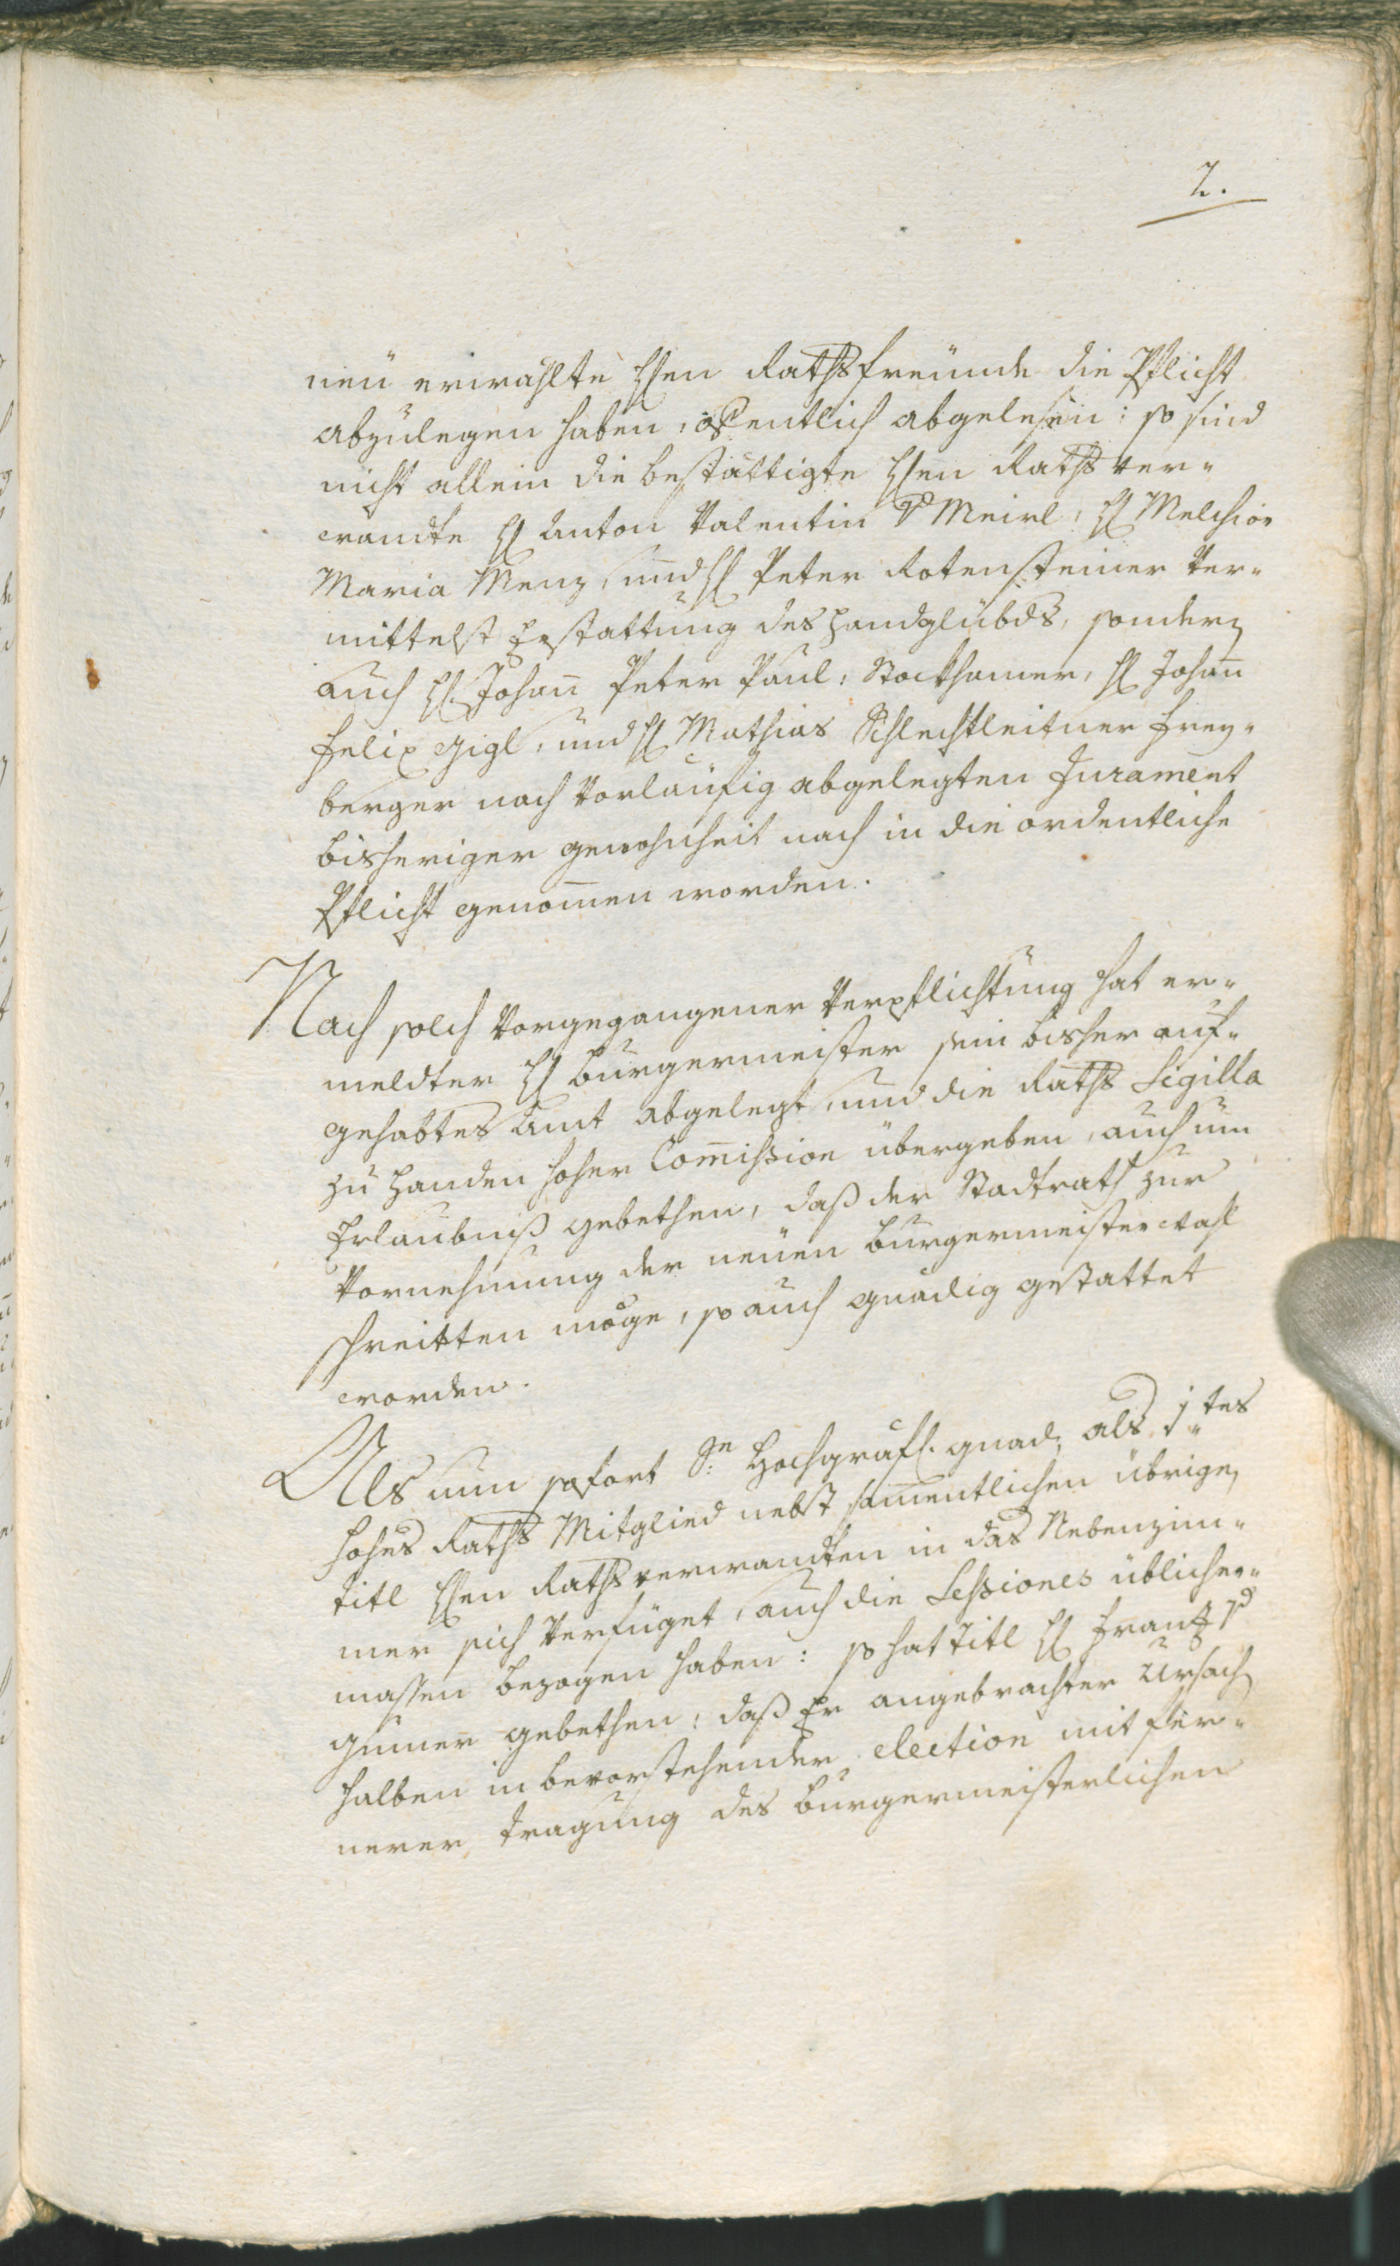 2.
neu erwählte Hen Rathsfreunde die Pflicht
abzulegen haben, öffentlich abgelesen: so sind
nicht allein die bestättigte Hen Rathsver-
wandte H Anton Valentin v Meirl, H Melchior
Maria Menz, und H Peter Rotensteiner ver-
mittelst Erstattung des Handglübds, sondern
auch H Johañ Peter Paul Stockhamer, H Johañ
Felix Gigl, und H Mathias Schlechtleitner Frey-
berger nach vorläufig abgelegten Jurament
bisheriger gewohnheit nach in die ordentliche
Pflicht genom̅en worden.
Nach solch vorgegangener Verpflichtung hat er-
meldter H Burgermeister sein bisher auf-
gehabtes Amt abgelegt, und die Raths Sigilla
zu Handen hoher Com̅ißion übergeben, auch um
Erlaubniß gebethen, daß der Stadtrath zur
Vornehmung der neuen Burgermeisterwahl
schreitten möge, so auch gnädig gestattet
worden.
Als nun sofort Se Hochgräfl. gnad. als 1tes
hohes Raths Mitglied nebst sam̅entlichen übrigen
titl Hen Rathsverwandten in das Nebenzim-
mer sich verfüget, auch die Seßiones üblicher-
massen bezogen haben: so hat titl H Frantz v
Gumer gebethen: daß Er angebrachter Ursach
halben in bevorstehender election mit fer-
nerer Tragung des Burgermeisterlichen